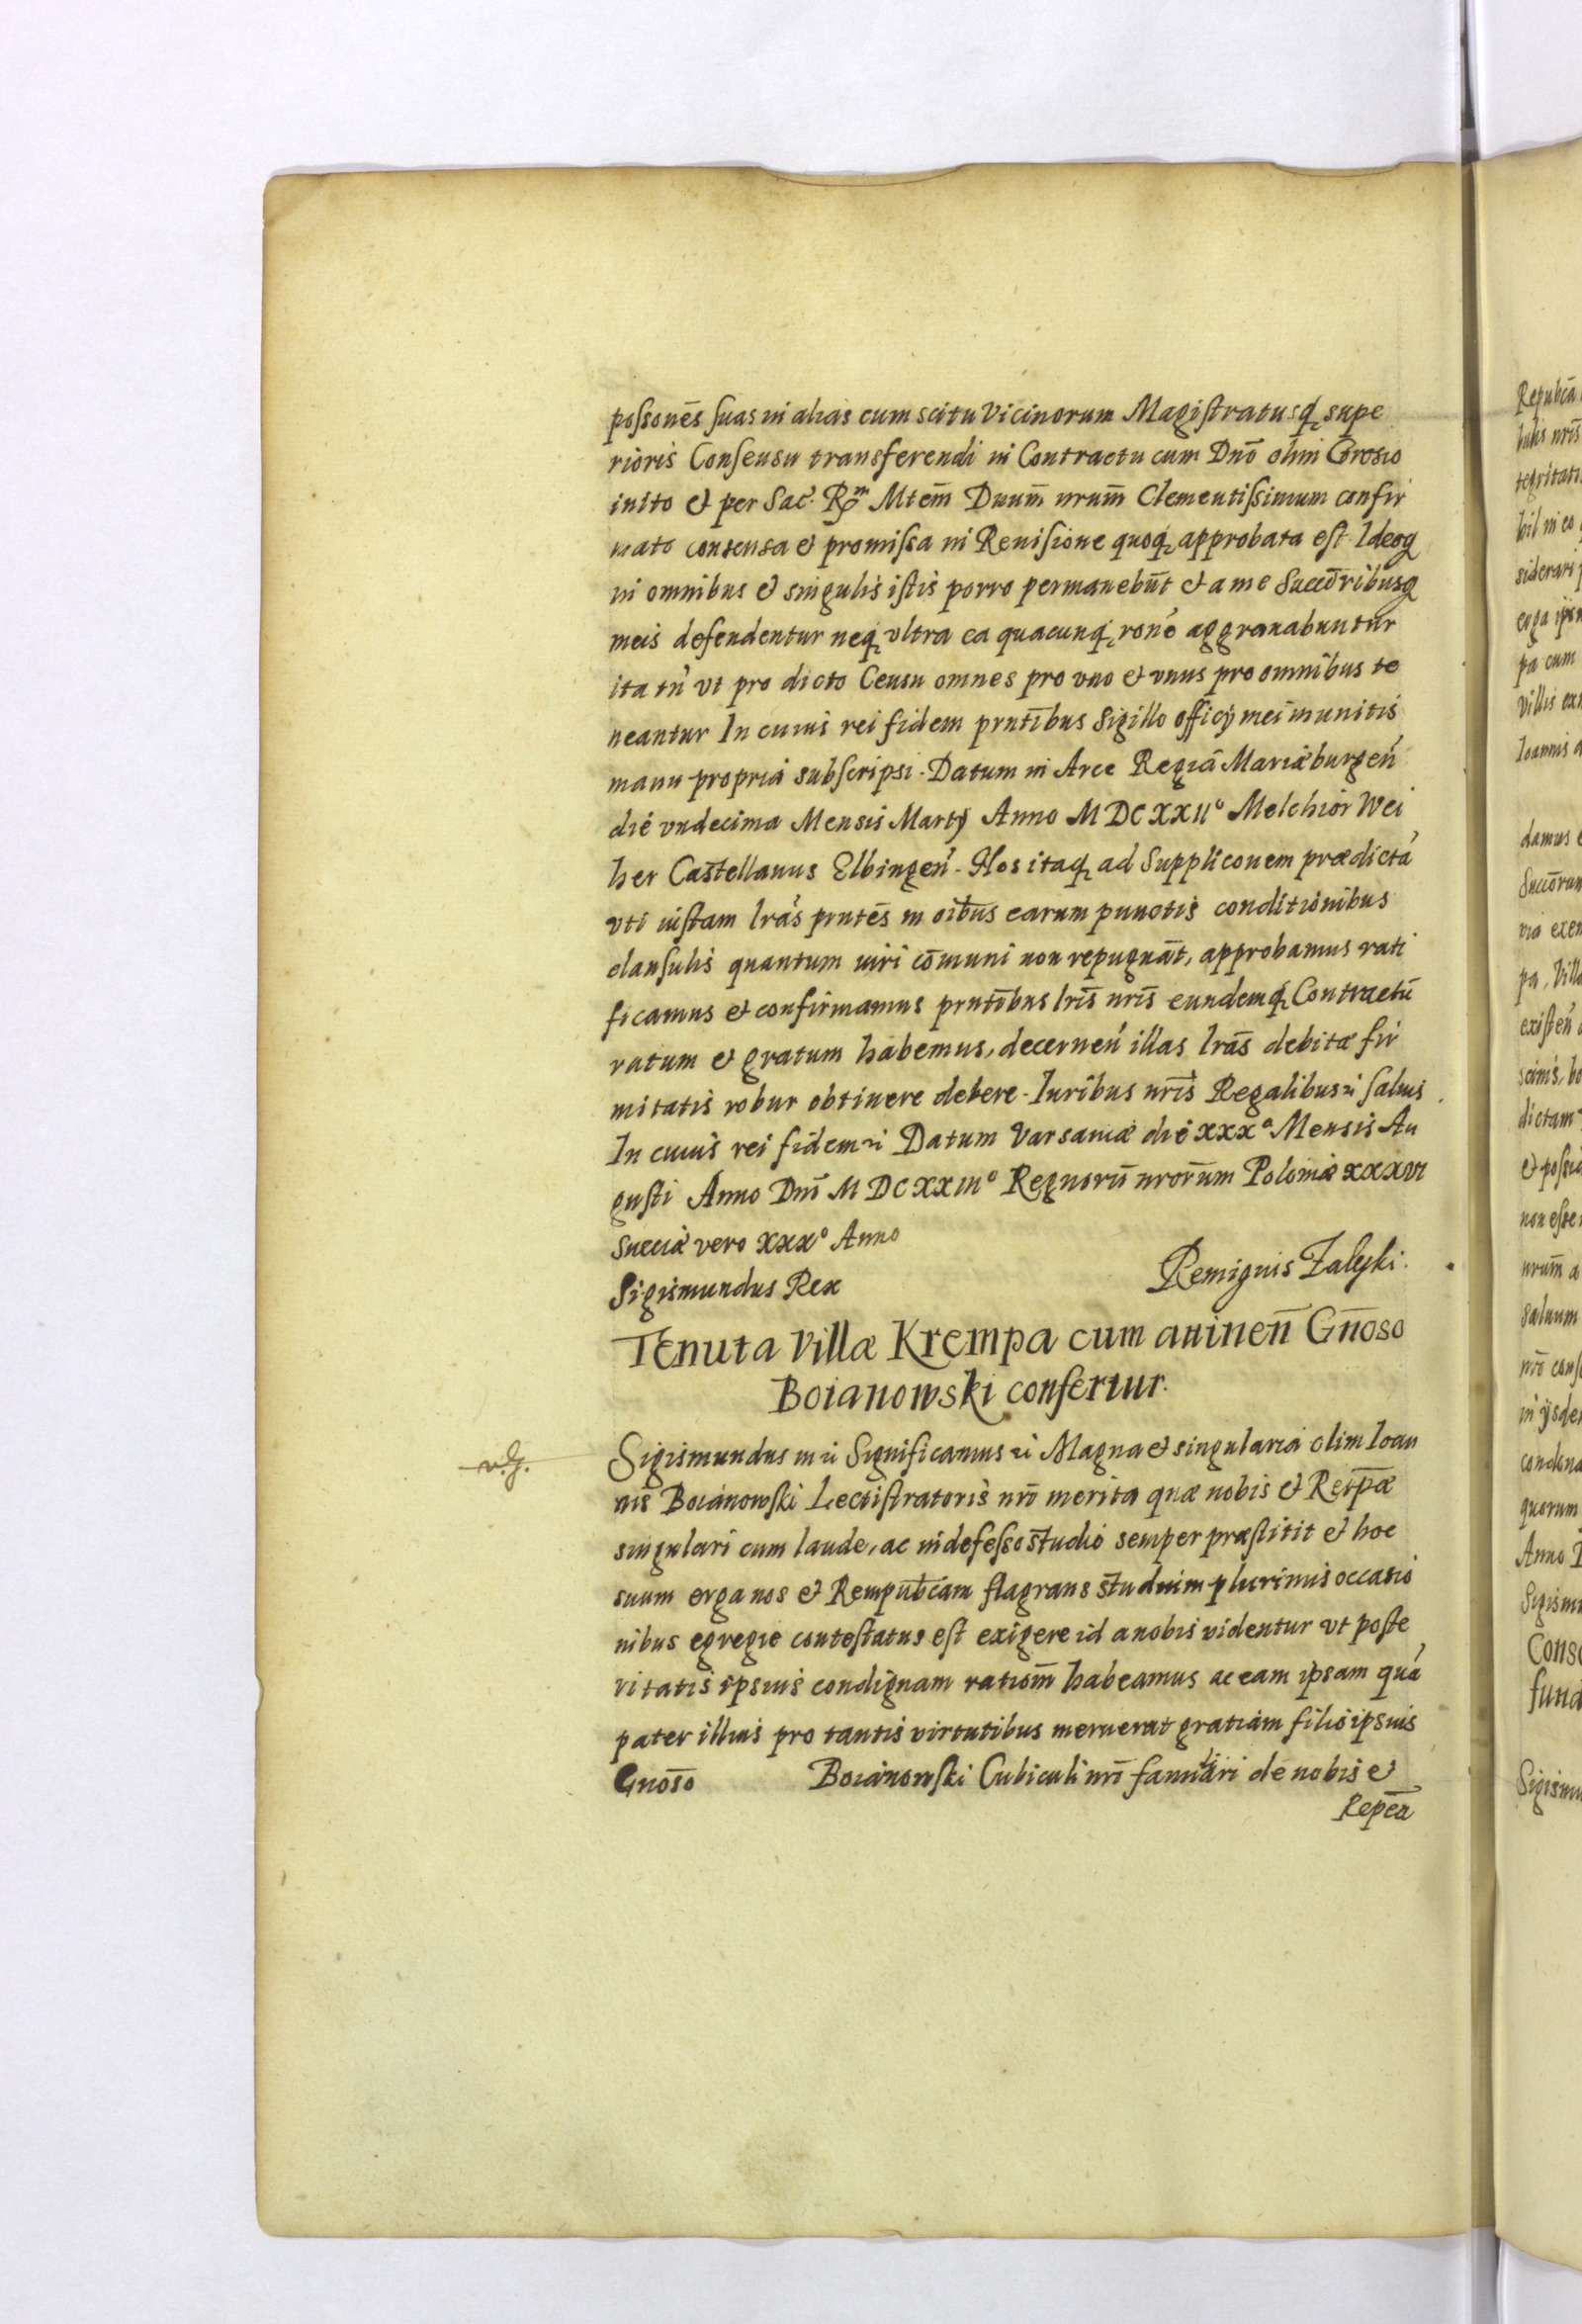 possonẽs suas in alias cum scitu Vicinorum Magistratusq supe
rioris Consensu transferendi in Contractu cum Dnō olim Grosio
inito et per Sac. Rm Mtem Dnum nrum Clementissimum confir
mato consensa et promissa in Reuisione quoq approbata est. Ideoq
in omnibus et singulis istis porro permanebūt et a me Succōribusq
meis defendentur neq vltra ea quacunq ronē aggrauabuntur
ita tn̄ vt pro dicto Censu omnes pro vno et vnus pro omnibus te
neantur In cuius rei fidem pntibus Sigillo officij mei munitis
manu propria subscripsi. Datum in Arce Regia Mariæburgen
die vndecima Mensis Martij Anno MDCXXIIº Melchior Wei
her Castellanus Elbingen. Nos itaq ad Supplicōnem prædictā
vti iustam lrās pntēs in oibus earum punctis conditionibus
clausulis quantum iuri cōmuni non repugnāt, approbamus rati
ficamus et confirmamus pntibus lris nris eundemq Contractū
ratum et gratum habemus, decernen illas lrās debitæ fir
mitatis robur obtinere debere. Iuribus nris Regalibus salus
In cuius rei fidem Datum Varsauiæ die xxxª Mensis Au
gusti Anno Dni MDCXXIIIº Regnorū nrorum Poloniæ xxxvi
Sueciæ vero xxxº Anno
Sigismundus Rex Remigius Zaleski.
Tenuta Villæ Krempa cum attinen Gnoso
Boianowski confertur.
v.g.
Sigismundus III Significamus Magna et singularia olim Ioan
nis Boianowski Lectistratoris nrī merita quæ nobis et Reipæ
singulari cum laude, ac indefesso studio semper præstitit et hoc
suum erga nos et Rempubcam flagrans studium plurimis occasio
nibus egregie contestatus est exigere id a nobis videntur vt poste
ritatis ipsius condignam rationm habeamus ac eam ipsam quā
pater illius pro tantis virtutibus meruerat gratiam filio ipsius
Gnoso Boianowski Cubiculi nrī familiari de nobis et
Repca